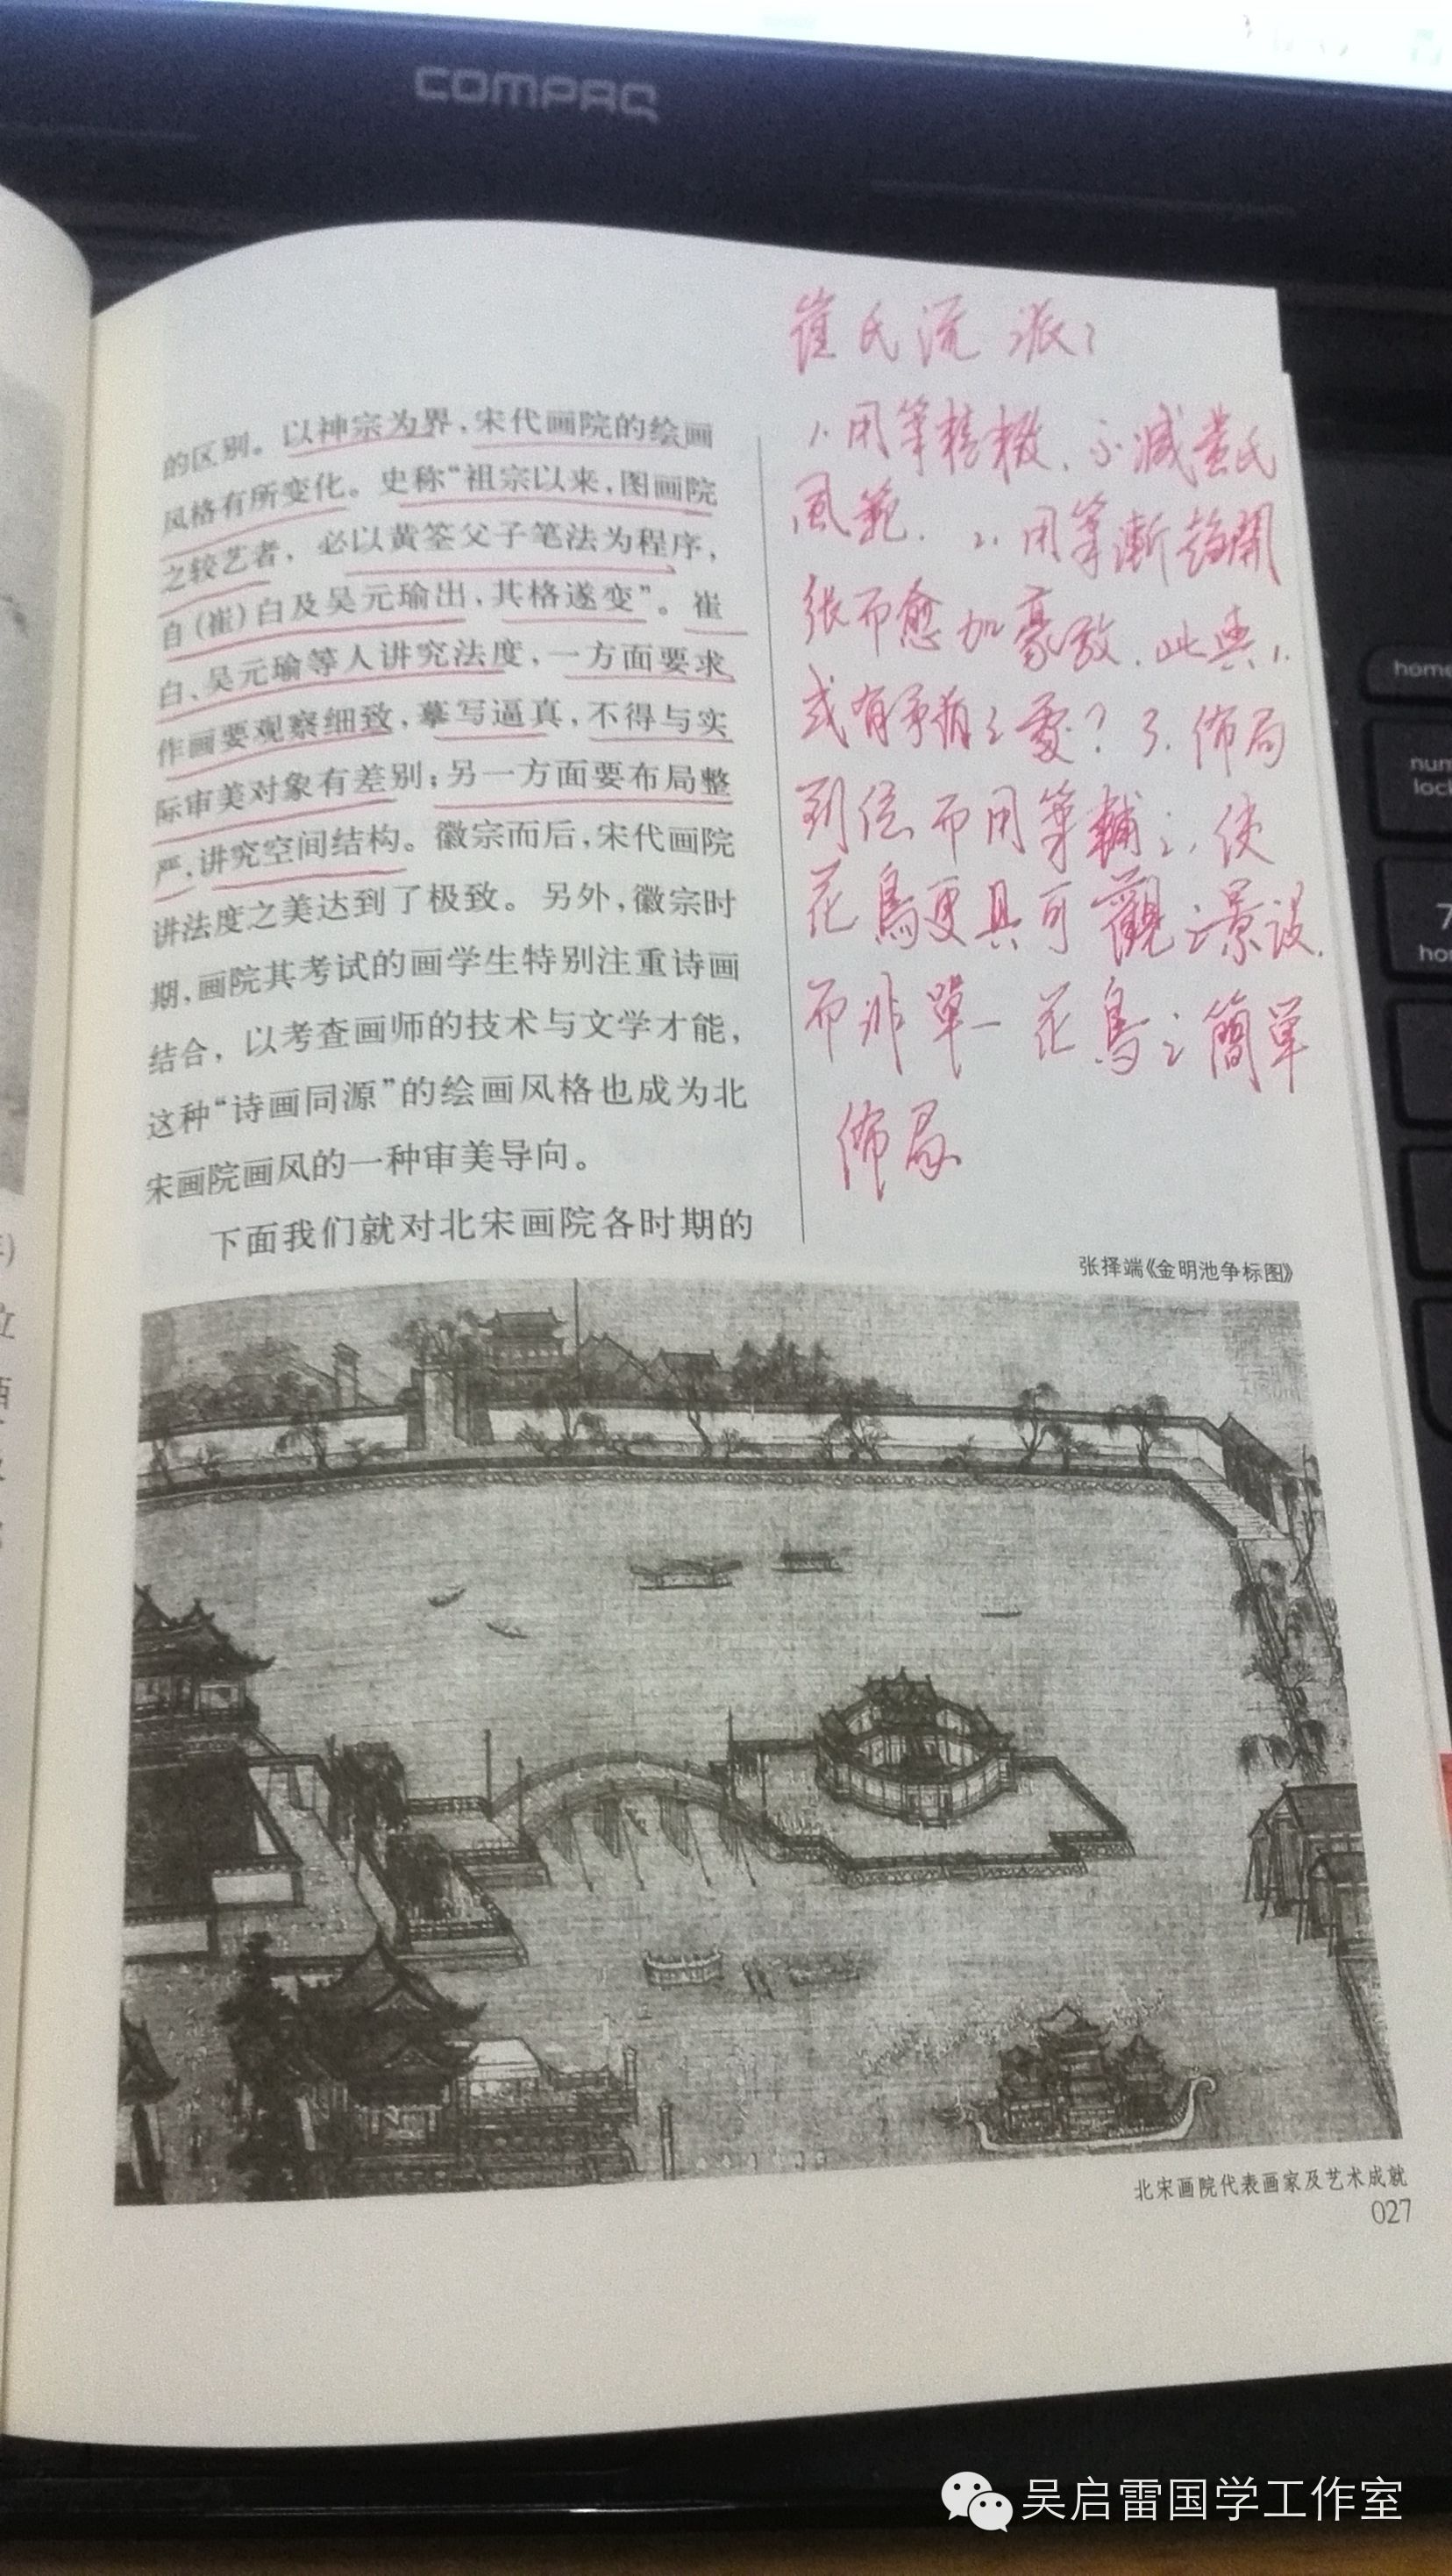 COMPAQ
崔氏流派:
1. 用筆精緻、不減黄氏
風範. 2. 用筆漸趋開
张而愈加豪放. 此與1.
或有矛盾之處? 3. 佈局
到位而用筆輔之, 使
花鳥更具可觀之景设.
而非單一花鳥之簡單
佈局
的区别。以神宗为界,宋代画院的绘画
风格有所变化。史称“祖宗以来,图画院
之较艺者,必以黄筌父子笔法为程序,
自(崔)白及吴元瑜出,其格遂变”。崔
白、吴元瑜等人讲究法度,一方面要求
作画要观察细致,摹写逼真,不得与实
际审美对象有差别;另一方面要布局整
严,讲究空间结构。徽宗而后,宋代画院
讲法度之美达到了极致。另外,徽宗时
期,画院其考试的画学生特别注重诗画
结合,以考查画师的技术与文学才能,
这种“诗画同源”的绘画风格也成为北
宋画院画风的一种审美导向。
下面我们就对北宋画院各时期的
张择端《金明池争标图》
北宋画院代表画家及艺术成就
027
home
num
lock
7
吴启雷国学工作室